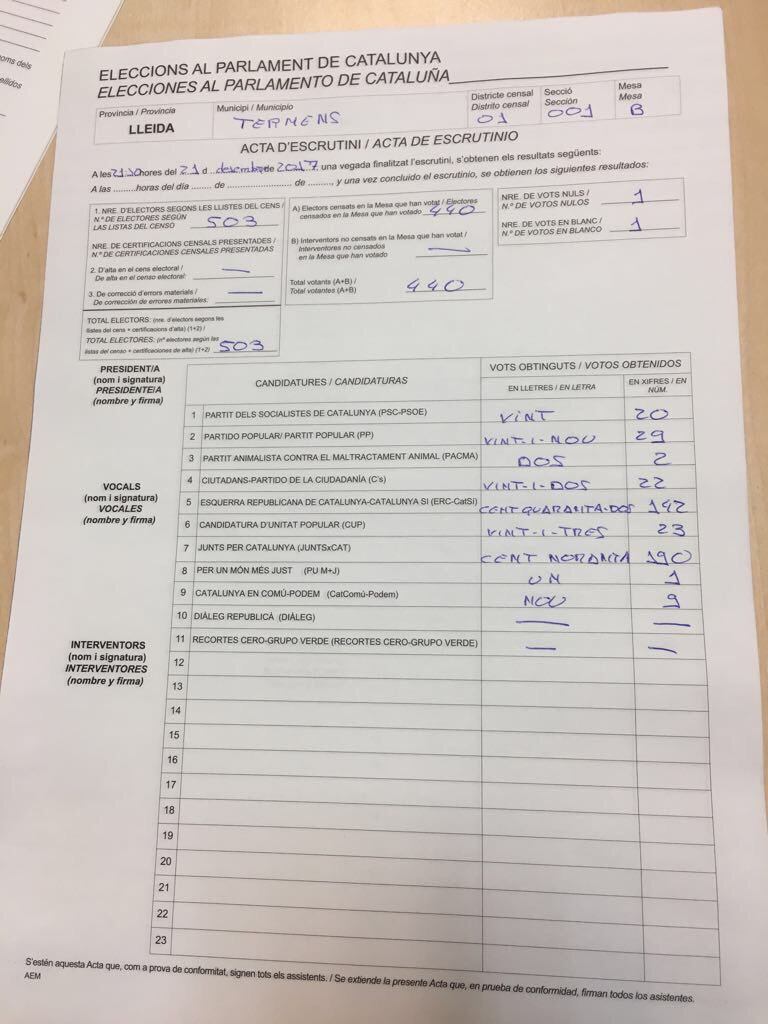 oms dels
ellidos
ELECCIONS AL PARLAMENT DE CATALUNYA
ELECCIONES AL PARLAMENTO DE CATALUÑA
Província / Provincia
LLEIDA
Municipi / Municipio
TERMENS
Districte censal
Distrito censal
01
Secció
Sección
001
Mesa
Mesa
B
ACTA D'ESCRUTINI / ACTA DE ESCRUTINIO
A les 21:30 hores del 21 d desembre de 2017 una vegada finalitzat l'escrutini, s'obtenen els resultats següents:
A las .........horas del día ....... de ....................... de ........, y una vez concluido el escrutinio, se obtienen los siguientes resultados:
1. NRE. D'ELECTORS SEGONS LES LLISTES DEL CENS /
N.º DE ELECTORES SEGÚN
LAS LISTAS DEL CENSO 503
NRE. DE CERTIFICACIONS CENSALS PRESENTADES /
N.º DE CERTIFICACIONES CENSALES PRESENTADAS
2. D'alta en el cens electoral / —
De alta en el censo electoral:
3. De correcció d'errors materials / —
De corrección de errores materiales:
TOTAL ELECTORS: (nre. d'electors segons les
llistes del cens + certificacions d'alta) (1+2) /
TOTAL ELECTORES: (nº electores según las
listas del censo + certificaciones de alta) (1+2) 503
A) Electors censats en la Mesa que han votat / Electores
censados en la Mesa que han votado 440
B) Interventors no censats en la Mesa que han votat /
Interventores no censados
en la Mesa que han votado —
Total votants (A+B) /
Total votantes (A+B) 440
NRE. DE VOTS NULS /
N.º DE VOTOS NULOS 1
NRE. DE VOTS EN BLANC /
N.º DE VOTOS EN BLANCO 1
PRESIDENT/A
(nom i signatura)
PRESIDENTE/A
(nombre y firma)
VOCALS
(nom i signatura)
VOCALES
(nombre y firma)
INTERVENTORS
(nom i signatura)
INTERVENTORES
(nombre y firma)
CANDIDATURES / CANDIDATURAS
VOTS OBTINGUTS / VOTOS OBTENIDOS
EN LLETRES / EN LETRA
EN XIFRES / EN NÚM.
1 PARTIT DELS SOCIALISTES DE CATALUNYA (PSC-PSOE) VINT 20
2 PARTIDO POPULAR/ PARTIT POPULAR (PP) VINT-I-NOU 29
3 PARTIT ANIMALISTA CONTRA EL MALTRACTAMENT ANIMAL (PACMA) DOS 2
4 CIUTADANS-PARTIDO DE LA CIUDADANÍA (C's) VINT-I-DOS 22
5 ESQUERRA REPUBLICANA DE CATALUNYA-CATALUNYA SI (ERC-CatSí) CENT QUARANTA-DOS 142
6 CANDIDATURA D'UNITAT POPULAR (CUP) VINT-I-TRES 23
7 JUNTS PER CATALUNYA (JUNTSxCAT) CENT NORANTA 190
8 PER UN MÓN MÉS JUST (PU M+J) UN 1
9 CATALUNYA EN COMÚ-PODEM (CatComú-Podem) NOU 9
10 DIÀLEG REPUBLICÀ (DIÀLEG) — —
11 RECORTES CERO-GRUPO VERDE (RECORTES CERO-GRUPO VERDE) — —
12
13
14
15
16
17
18
19
20
21
22
23
S'estén aquesta Acta que, com a prova de conformitat, signen tots els assistents. / Se extiende la presente Acta que, en prueba de conformidad, firman todos los asistentes.
AEM